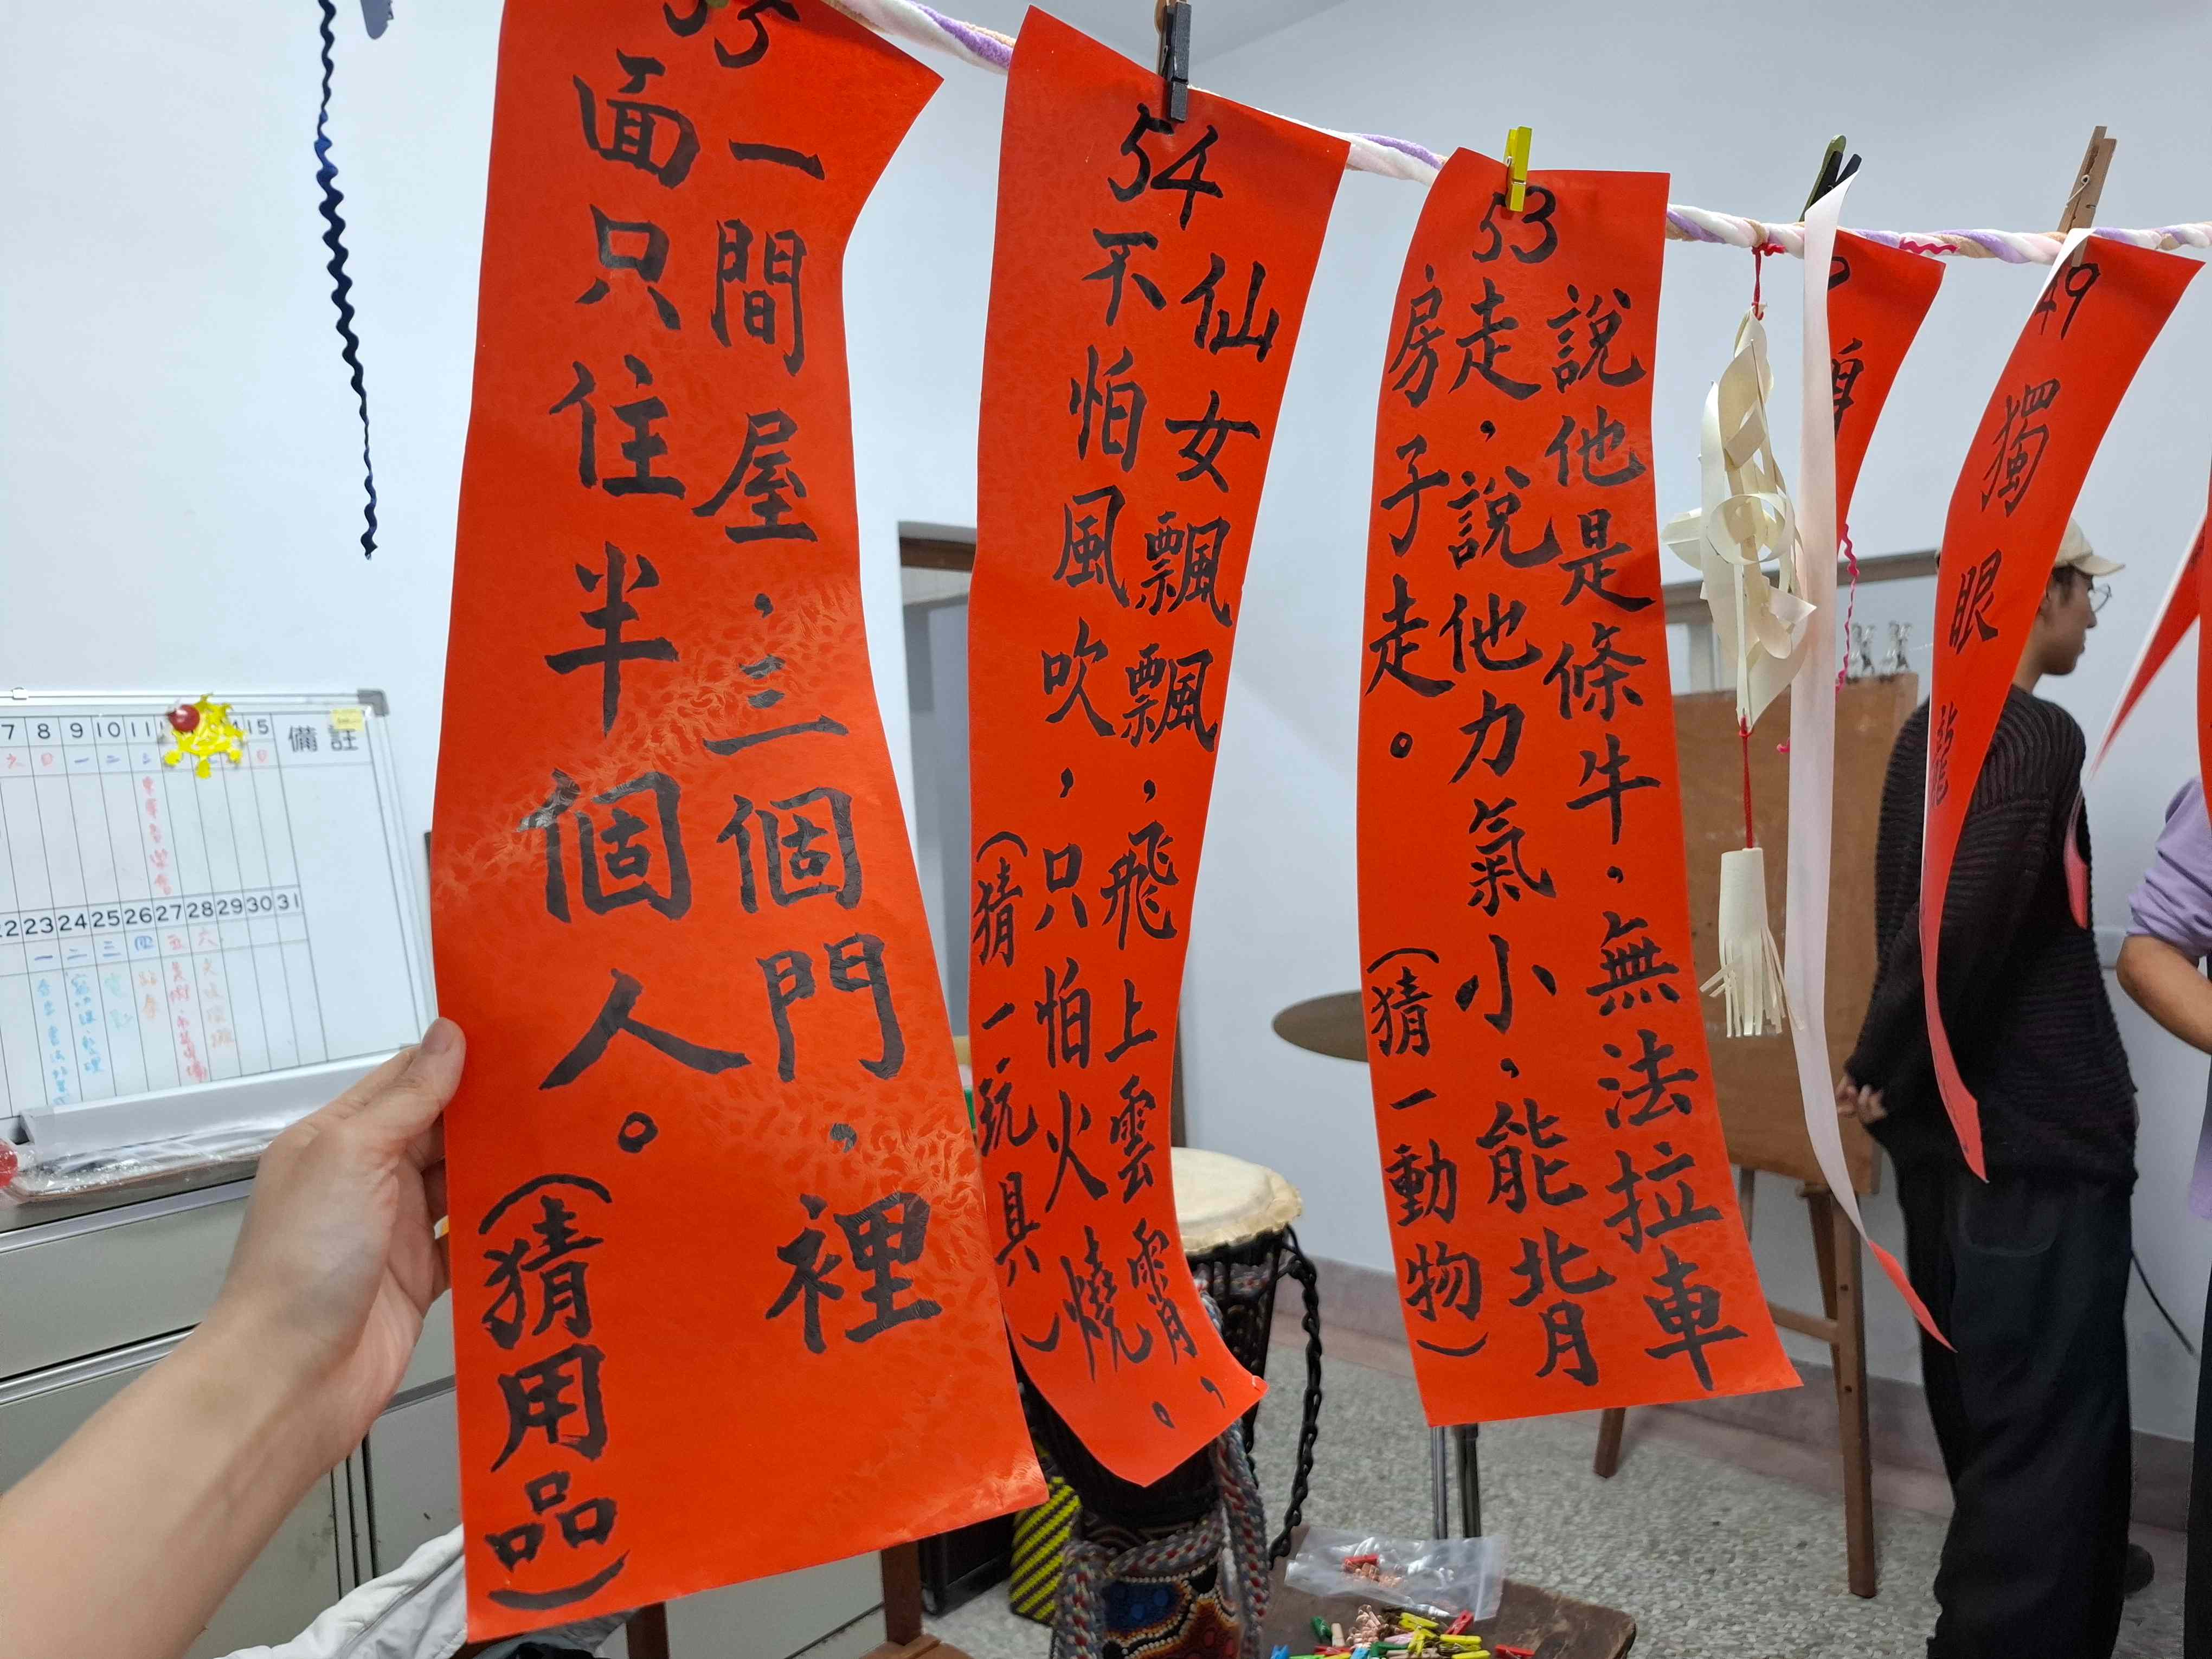 55
一間屋,三個門,裡
面只住半個人。
(猜用品)
54
仙女飄飄,飛上雲霄,
不怕風吹,只怕火燒。
(猜一玩具)
53
說他是條牛,無法拉車
走,說他力氣小,能背
房子走。
(猜一動物)
49
獨眼龍
7 8 9 10 11 15 備註
六 日 一 二 三 日
23 24 25 26 27 28 29 30 31
一 二 三 四 五 六